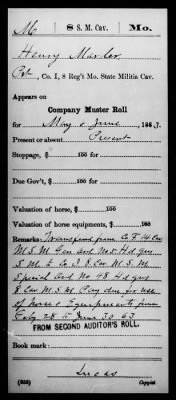 M | 8 S. M. Cav. | Mo.
Henry Marler
Pvt, Co. I, 8 Reg't Mo. State Militia Cav.
Appears on
Company Muster Roll
for May & June, 1863.
Present or absent Present
Stoppage, $ 100 for
Due Gov't, $ 100 for
Valuation of horse, $ 100
Valuation of horse equipments, $ 100
Remarks: Transferred from Co F 14 Cav
M.S.M. Gen and No 5 Hd qrs
S.M. to Co I 8 Cav M.S.M.
Special Ord No 48 Hd qrs
8 Cav M.S.M. Pay due for use
of horse & Equipments from
Feby 28 to June 30 63
FROM SECOND AUDITOR'S ROLL.
Book mark:
Lucas
(356) Copyist.